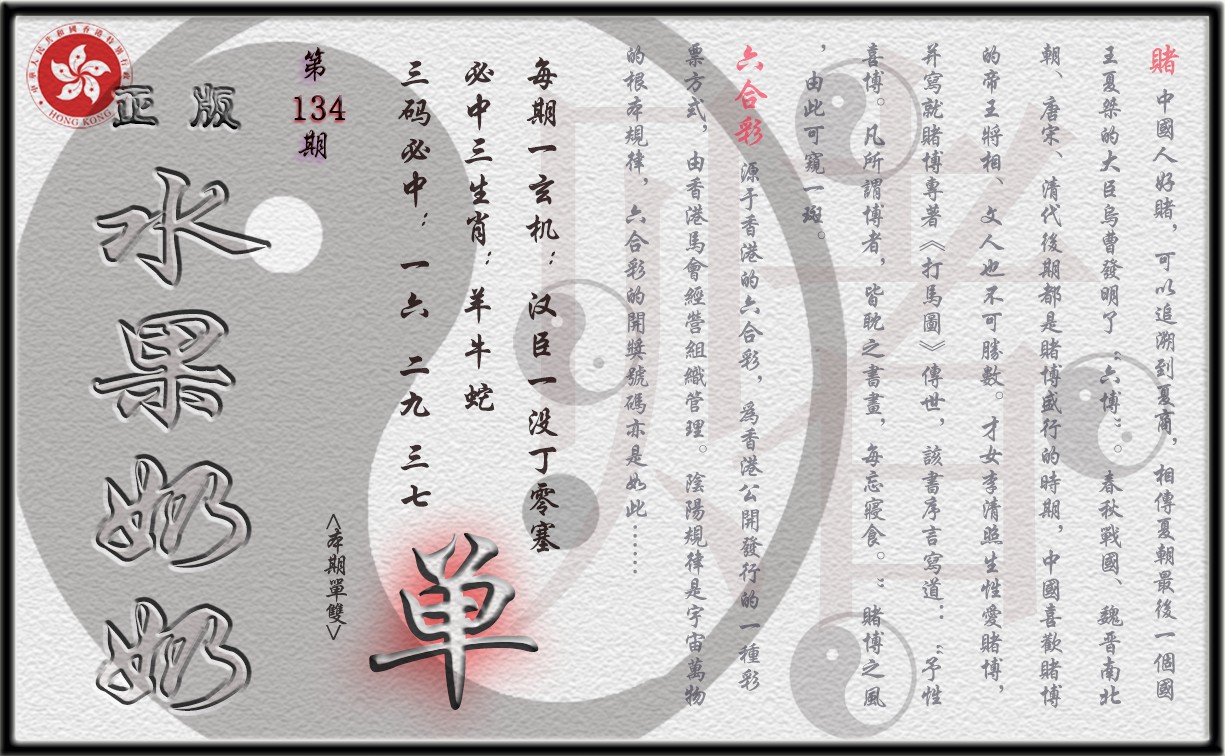 賭 中國人好賭，可以追溯到夏商，相傳夏朝最後一個國
王夏桀的大臣烏曹發明了“六博”。春秋戰國、魏晋南北
朝、唐宋、清代後期都是賭博盛行的時期，中國喜歡賭博
的帝王將相、文人也不可勝數。才女李清照生性愛賭博，
并寫就賭博專著《打馬圖》傳世，該書序言寫道：“予性
喜博。凡所謂博者，皆耽之書畫，每忘寢食。”賭博之風
，由此可窺一斑。
六合彩 源于香港的六合彩，爲香港公開發行的一種彩
票方式，由香港馬會經營組織管理。陰陽規律是宇宙萬物
的根本規律，六合彩的開獎號碼亦是如此……
每期一玄机：汉臣一没丁零塞
必中三生肖：羊牛蛇
三码必中：一六 二九 三七
单
<本期單雙>
第
134
期
正版
水果奶奶
中華人民共和國香港特別行政區
HONG KONG
賭